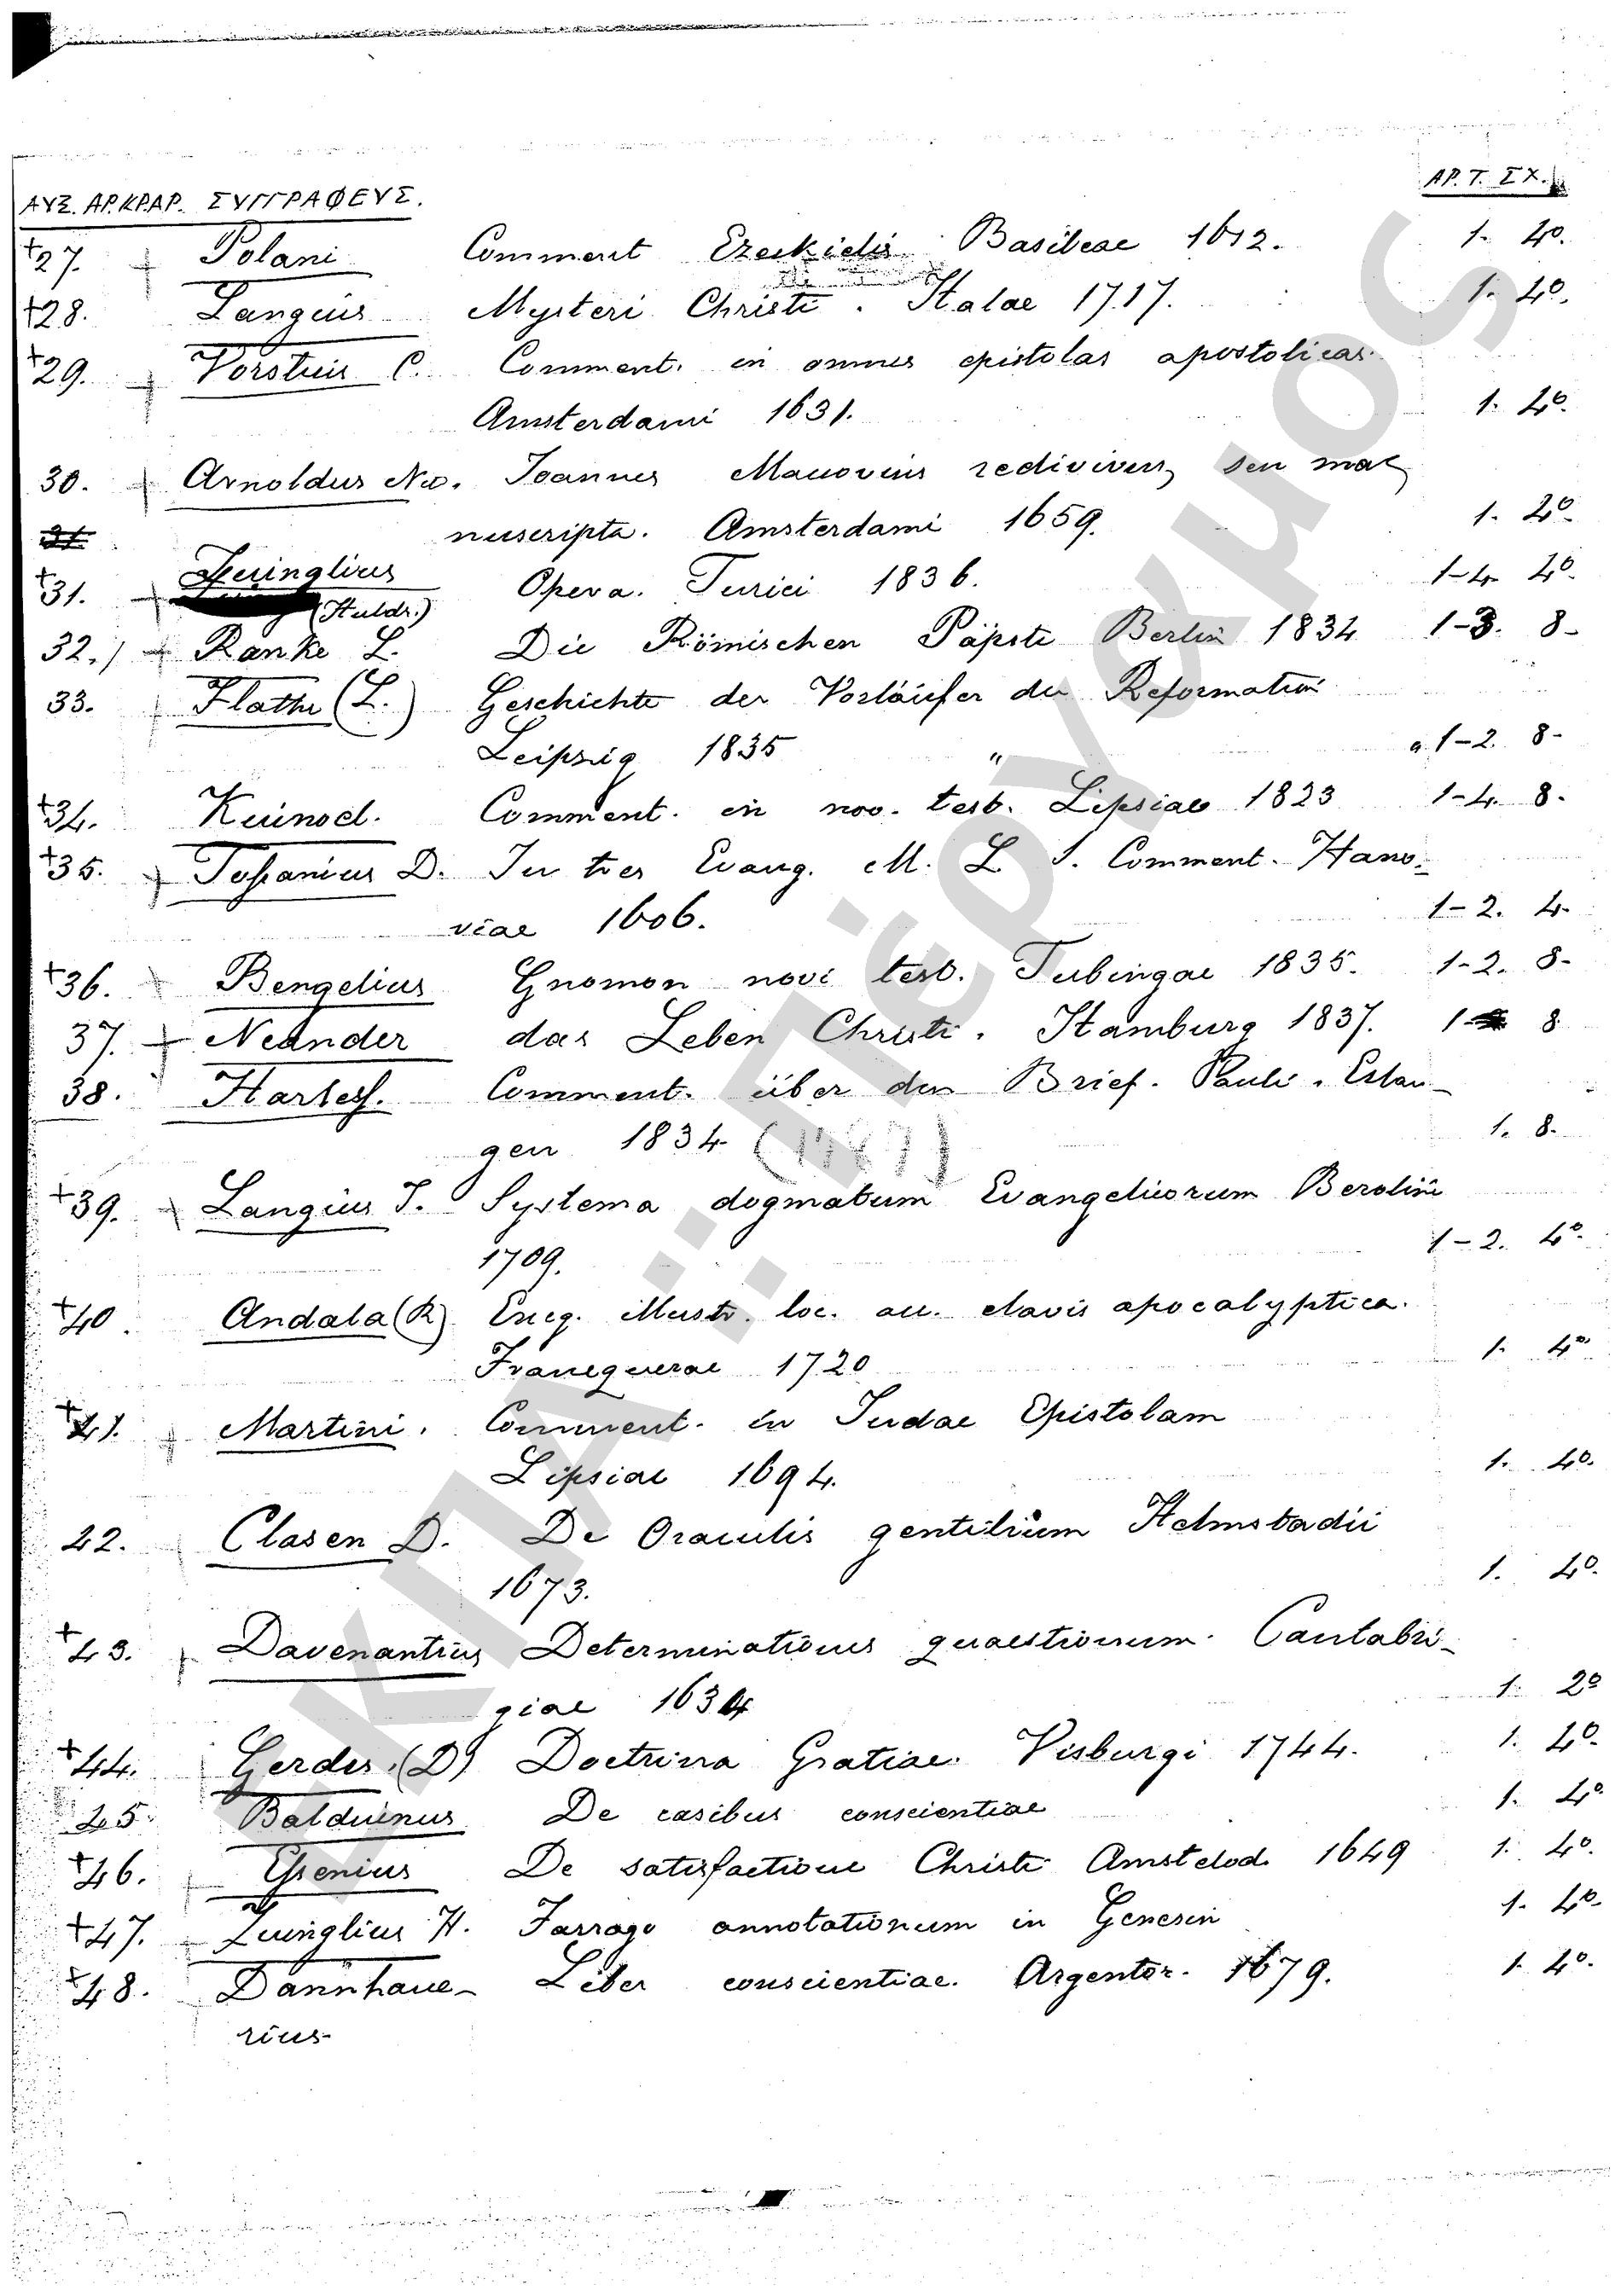 ΑΥΞ. ΑΡ. ΚΡ. ΑΡ. ΣΥΓΓΡΑΦΕΥΣ. ΑΡ. Τ. ΣΧ.
+27. + Polani Comment Ezeckielis Basileae 1612. 1. 4º.
+28. Langius Mysteri Christi. Halae 1717. 1. 4º.
+29. + Vorstius C. Comment. in omnes epistolas apostolicas
Amsterdami 1631. 1. 4º.
30. + Arnoldus Nic. Joannes Macovius redivivus, seu ma-
nuscripta. Amsterdami 1659. 1. 4º.
31
+31. + Zuinglius Opera. Turici 1836. 1-4 4º.
(Huldr.)
32. + Ranke L. Die Römischen Päpste Berlin 1834 1-3. 8-
33. Flathe (L.) Geschichte der Vorläufer der Reformation
Leipzig 1835 " 1-2. 8-
+34. Kuinoel. Comment. in nov. test. Lipsiae 1823 1-4. 8-
+35. + Tossanius D. In tres Evang. M. L J. Comment. Hano-
viae 1606. 1-2. 4-
+36. Bengelius Gnomon novi test. Tubingae 1835. 1-2. 8-
37. + Neander das Leben Christi. Hamburg 1837. 1 8
38. Harless. Comment. über den Brief. Pauli. Erlan-
gen 1834 1. 8-
+39. Langius J. Systema dogmatum Evangelicorum Berolini
1709. 1-2. 4º.
+40. Andala (R) Exeg. illustr. loc. au. clavis apocalyptica.
Franequerae 1720 1. 4º
+41. Martini. Comment. in Judae Epistolam
Lipsiae 1694. 1. 4º.
42. Clasen D. De Oraculis gentilium Helmstadii
1673. 1. 4º.
+43. Davenantius Determinationes quaestionum. Cantabri-
giae 1634 1. 2º
+44. Gerdes. (D) Doctrina Gratiae. Visburgi 1744. 1. 4º.
45. Balduinus De casibus conscientiae 1. 4º
+46. Essenius De satisfactione Christi Amstelod. 1649 1. 4º.
+47. Zuinglius H. Farrago annotationum in Genesin 1. 4º.
+48. Dannhaue- Liber conscientiae. Argentor. 1679. 1. 4º.
rius